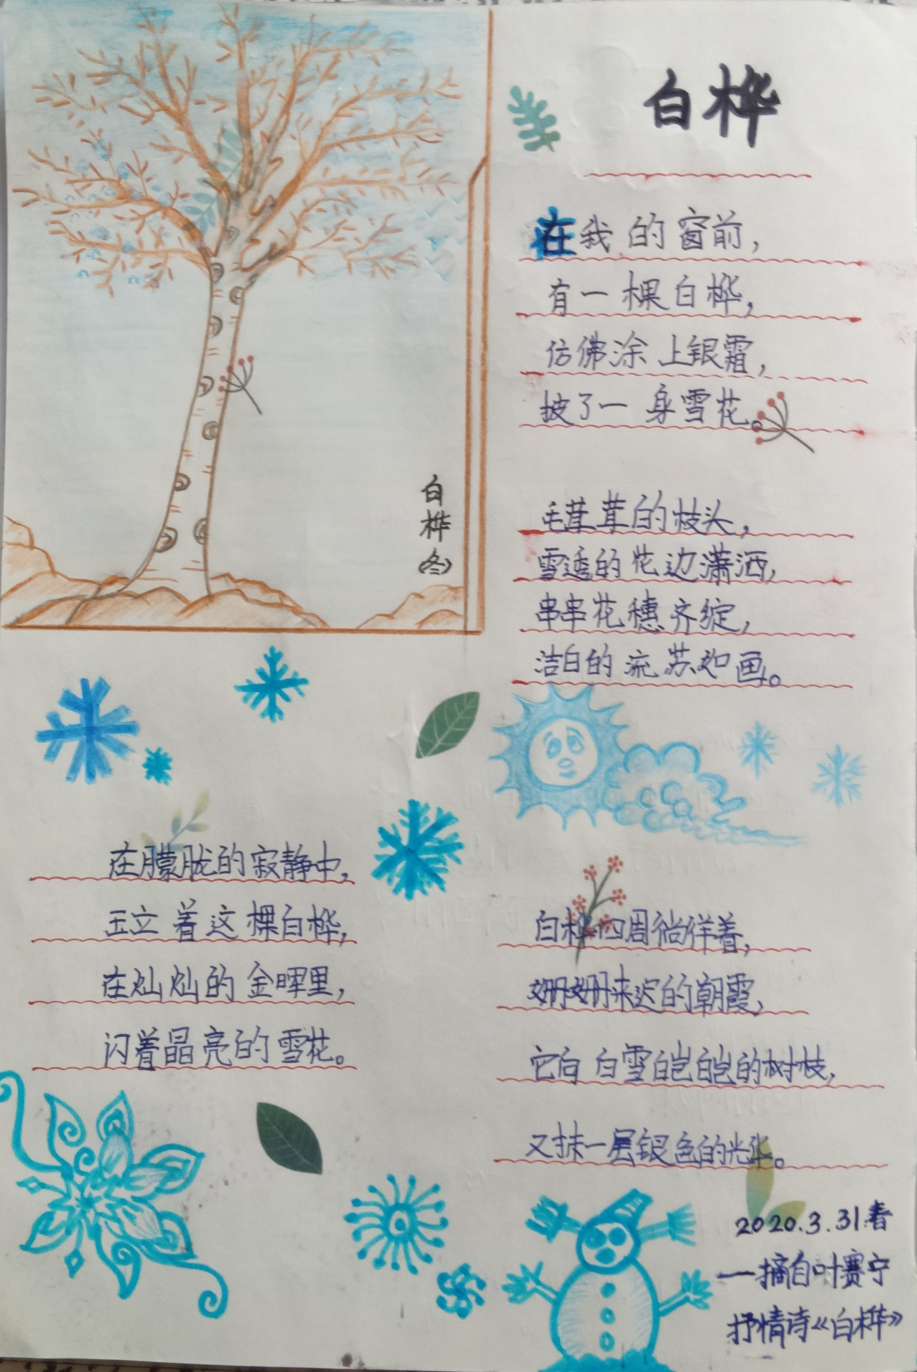 白桦
在我的窗前，
有一棵白桦，
仿佛涂上银霜，
披了一身雪花。
毛茸茸的枝头，
雪透的花边潇洒，
串串花穗齐绽，
洁白的流苏如画。
白桦(冬)
在朦胧的寂静中，
玉立着这棵白桦，
在灿灿的金晖里，
闪着晶亮的雪花。
白桦四周徜徉着，
姗姗来迟的朝霞，
它向白雪皑皑的树枝，
又抹一层银色的光华。
2020.3.31春
一摘自叶赛宁
抒情诗《白桦》